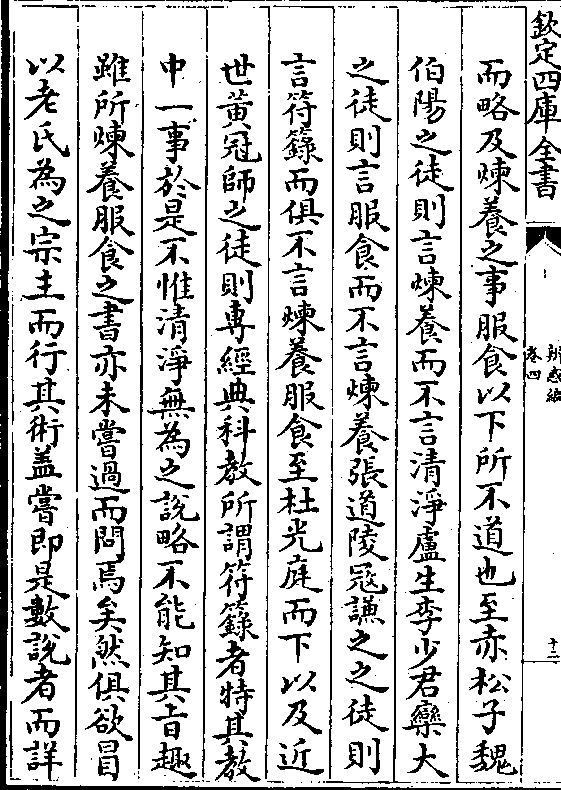 欽定四庫全書
辨惑編
卷四
十二
而略及煉養之事服食以下所不道也至赤松子魏
伯陽之徒則言煉養而不言清淨盧生李少君欒大
之徒則言服食而不言煉養張道陵冦謙之之徒則
言符籙而俱不言煉養服食至杜光庭而下以及近
世黃冠師之徒則專經典科教所謂符籙者特其教
中一事於是不惟清淨無為之說略不能知其旨趣
雖所煉養服食之書亦未嘗過而問焉矣然俱欲冒
以老氏為之宗主而行其術盖嘗即是數說者而詳